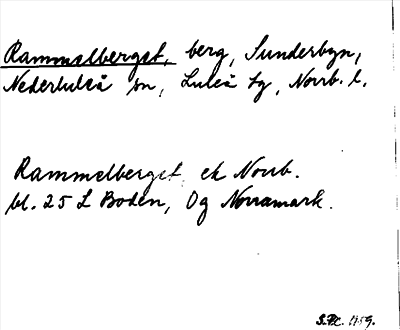 Rammelberget, berg, Sunderbyn,
Nederluleå sn, Luleå tg, Norrb. l.
Rammelberget ek Norrb.
bl. 25 L Boden, Og Norramark.
1959.